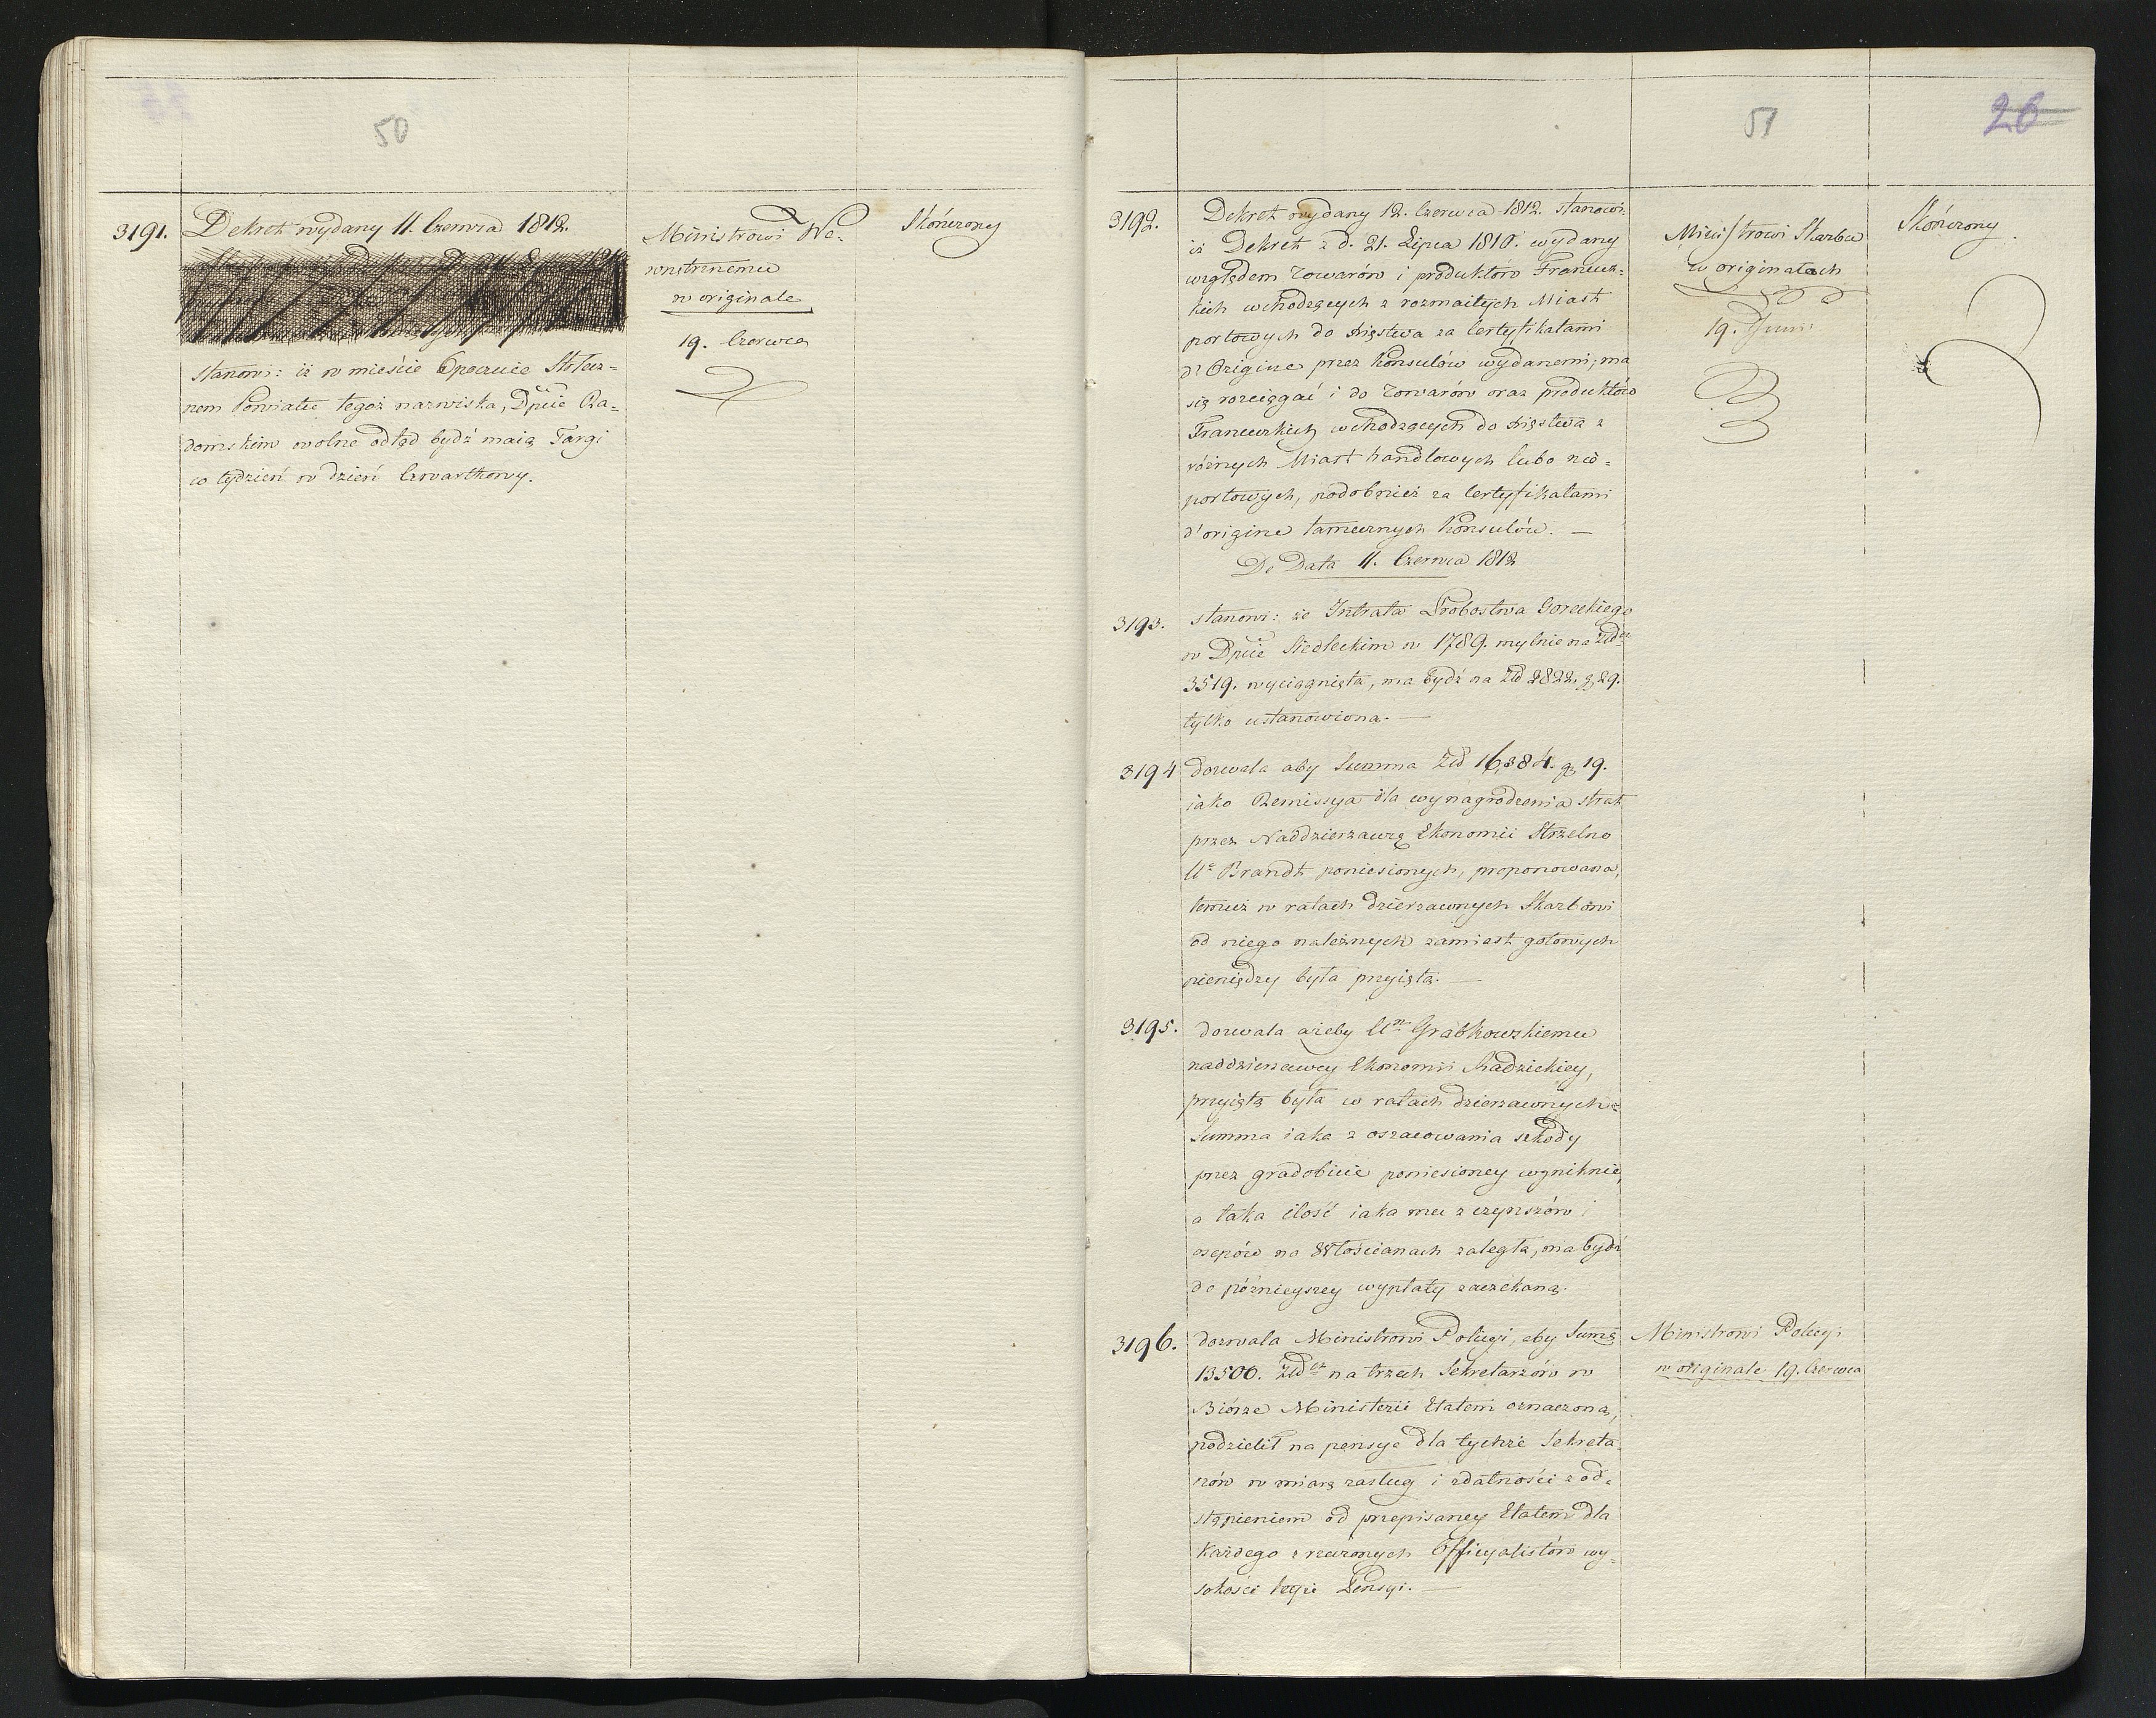 50
3191.
Dekret wydany 11. Czerwca 1812.
stanowi: iż w mieście Opocznie Stołecz=
nem Powiatu tegoż nazwiska, Dpcie Ra=
domskim wolne odtąd bydź maią Targi
co tydzień w dzień Czwartkowy.
Ministrowi We=
wnętrznemu
w originale
19. Czerwca
Skończony
51
26
3192.
Dekret wydany 12. Czerwca 1812. stanowi:
iż Dekret z d. 21. Lipca 1810. wydany
względem Towarów i produktów Francuz=
kich wchodzących z rozmaitych Miast
portowych do Xięstwa za Certyfikatami
d'Origine przez Konsulów wydanemi, ma
się rozciągać i do Towarów oraz produktów
Francuzkich wchodzących do Xięstwa z
różnych Miast handlowych lubo nie=
portowych, podobnież za Certyfikatami
d'origine tamecznych Konsulów. —
De Data 11. Czerwca 1812
Ministrowi Skarbu
w originałach
19. Juni
Skończony
3193.
stanowi: że Intrata Probostwa Goreckiego
w Dpcie Siedleckim w 1789. mylnie na Złd
3519. wyciągnięta, ma bydź na Złd 2822. g 29.
tylko ustanowiona. —
3194
dozwala aby Summa Złd 16,884. g 19.
iako Remissya dla wynagrodzenia strat
przez Naddzierzawcę Ekonomii Strzelno
Ur Brandt poniesionych, proponowana,
temuż w ratach dzierzawnych Skarbowi
od niego należnych zamiast gotowych
pieniędzy była przyiętą. —
3195.
dozwala ażeby Um Grabkowskiemu
naddzierzawcy Ekonomii Radzickiey,
przyiętą była w ratach dzierzawnych
Summa iaka z oszacowania szkody
przez gradobicie poniesioney wyniknie,
a taka ilość iaka mu z czynszów i
osepów na Włościanach zaległa, ma bydź
do poźnieyszey wypłaty zaczekaną.
3196.
dozwala Ministrowi Policyi, aby Sumę
13500. Złd na trzech Sekretarzów w
Biórze Ministerii Etatem oznaczoną,
podzielił na pensye dla tychże Sekreta
rzów w miarę zasług i zdatności z od=
stąpieniem od przepisaney Etatem dla
każdego z rzeczonych Officyalistów wy=
sokości teyże Pensyi. —
Ministrowi Policyi
w originale 19. Czerwca